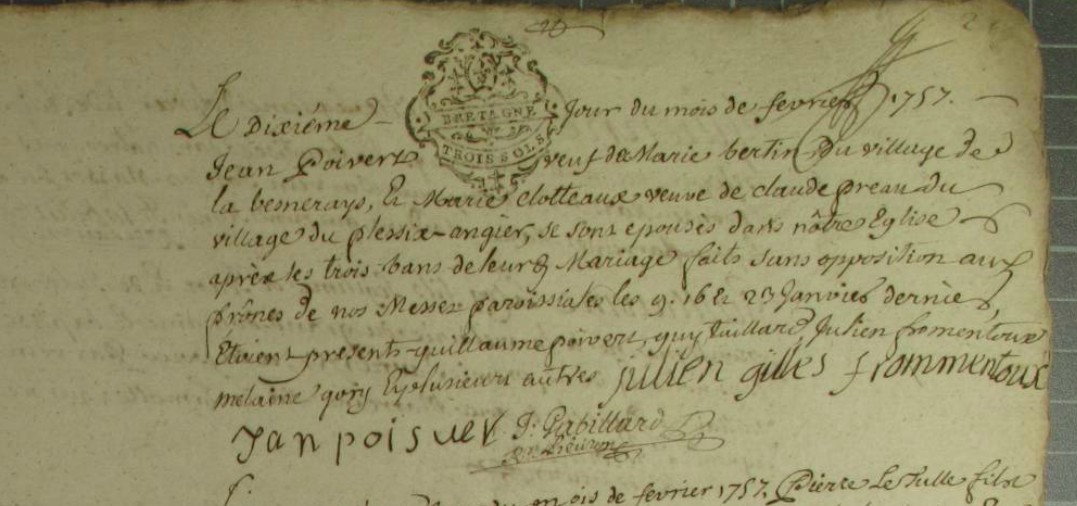 2
BRETAGNE
TROIS SOLS
Le Dixiéme Jour du mois de fevrier 1757.
Jean Poivert veuf de Marie bertin Du village de
la besnerays, Et Marie clotteaux veuve de claude preau du
village du plessix-angier, se sont epousés dans nôtre Eglise
après les trois bans de leurs Mariage faits sans opposition aux
prônes de nos Messes paroissiales les 9. 16 & 23 Janvier dernier
Etoient presents guillaume poivert, guy Taillard, Julien fromentoux
melaine Et plusieurs autres julien gilles frommentoux
Jan poisuer J: Gabillard
R.
du mois de fevrier 1757. Pierre Le Tulle fils